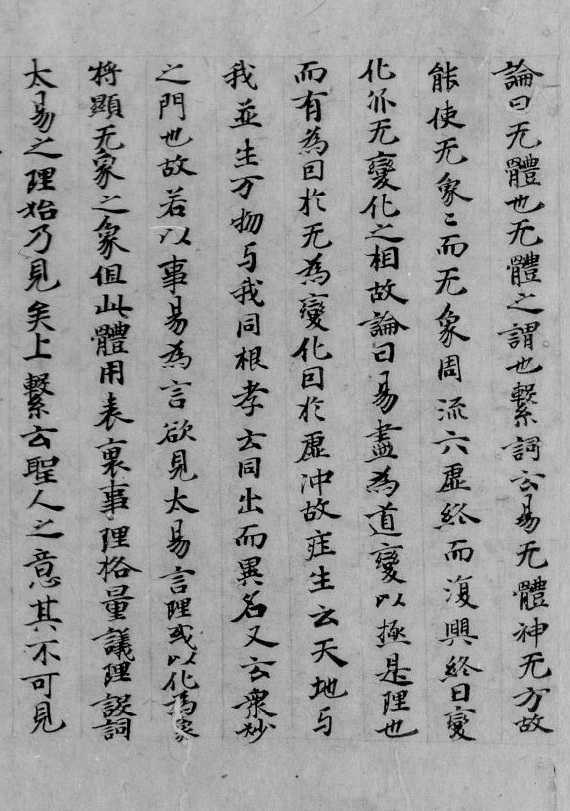 論曰无體也无體之謂也繫詞云易无體神无方故
能使无象〻而无象周流六虛終而復興終日變
化尒无變化之相故論曰易盡為道變以極是理也
而有為因於无為變化因於虛冲故庄生云天地与
我並生万物与我同根孝云同出而異名又云衆妙
之門也故若以事易為言欲見太易言理或以化為象
將顯无象之象但此體用表裏事理格量議理談詞
太易之理始乃見矣上繫云聖人之意其不可見